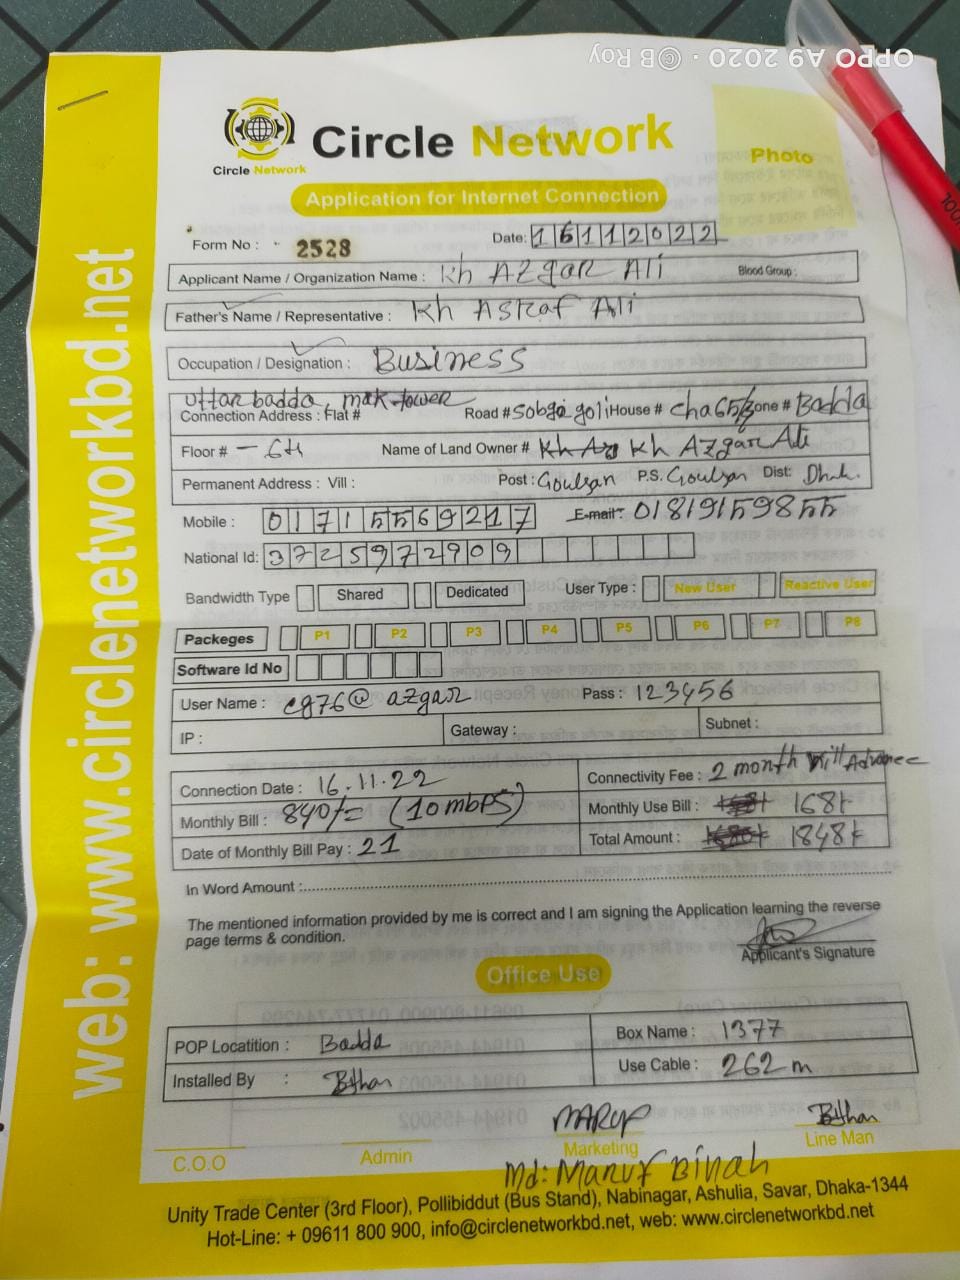 OPPO A9 2020 · ©B Roy
Circle Network
Circle Network
Photo
Application for Internet Connection
Form No : 2528 Date: 16112022
Applicant Name / Organization Name : Kh AZgar Ali Blood Group :
Father's Name / Representative : Kh Asraf Ali
Occupation / Designation : Business
Uttar badda, mak tower
Connection Address : Flat # Road # Sobga goli House # cha65/3 Zone # Badda
Floor # - 6th Name of Land Owner # Kh Azgar Ali
Permanent Address : Vill : Post : Goulsan P.S. Goulsan Dist: Dhak.
Mobile : 01715569217 E-mail: 01819159855
National Id: 3725972909
Bandwidth Type Shared Dedicated User Type : New User Reactive User
Packeges P1 P2 P3 P4 P5 P6 P7 P8
Software Id No
User Name : cg76@azgar Pass : 123456
IP : Gateway : Subnet :
Connection Date : 16.11.22 Connectivity Fee : 2 month Advance
Monthly Bill : 840/= (10mbps) Monthly Use Bill : 168/-
Date of Monthly Bill Pay : 21 Total Amount : 1848/-
In Word Amount :
The mentioned information provided by me is correct and I am signing the Application learning the reverse
page terms & condition.
Applicant's Signature
Office Use
POP Locatition : Badda Box Name : 1377
Installed By : Use Cable : 262 m
MARUF
C.O.O Admin Marketing Line Man
Md: Maruf Binah
Unity Trade Center (3rd Floor), Pollibiddut (Bus Stand), Nabinagar, Ashulia, Savar, Dhaka-1344
Hot-Line: + 09611 800 900, info@circlenetworkbd.net, web: www.circlenetworkbd.net
web: www.circlenetworkbd.net